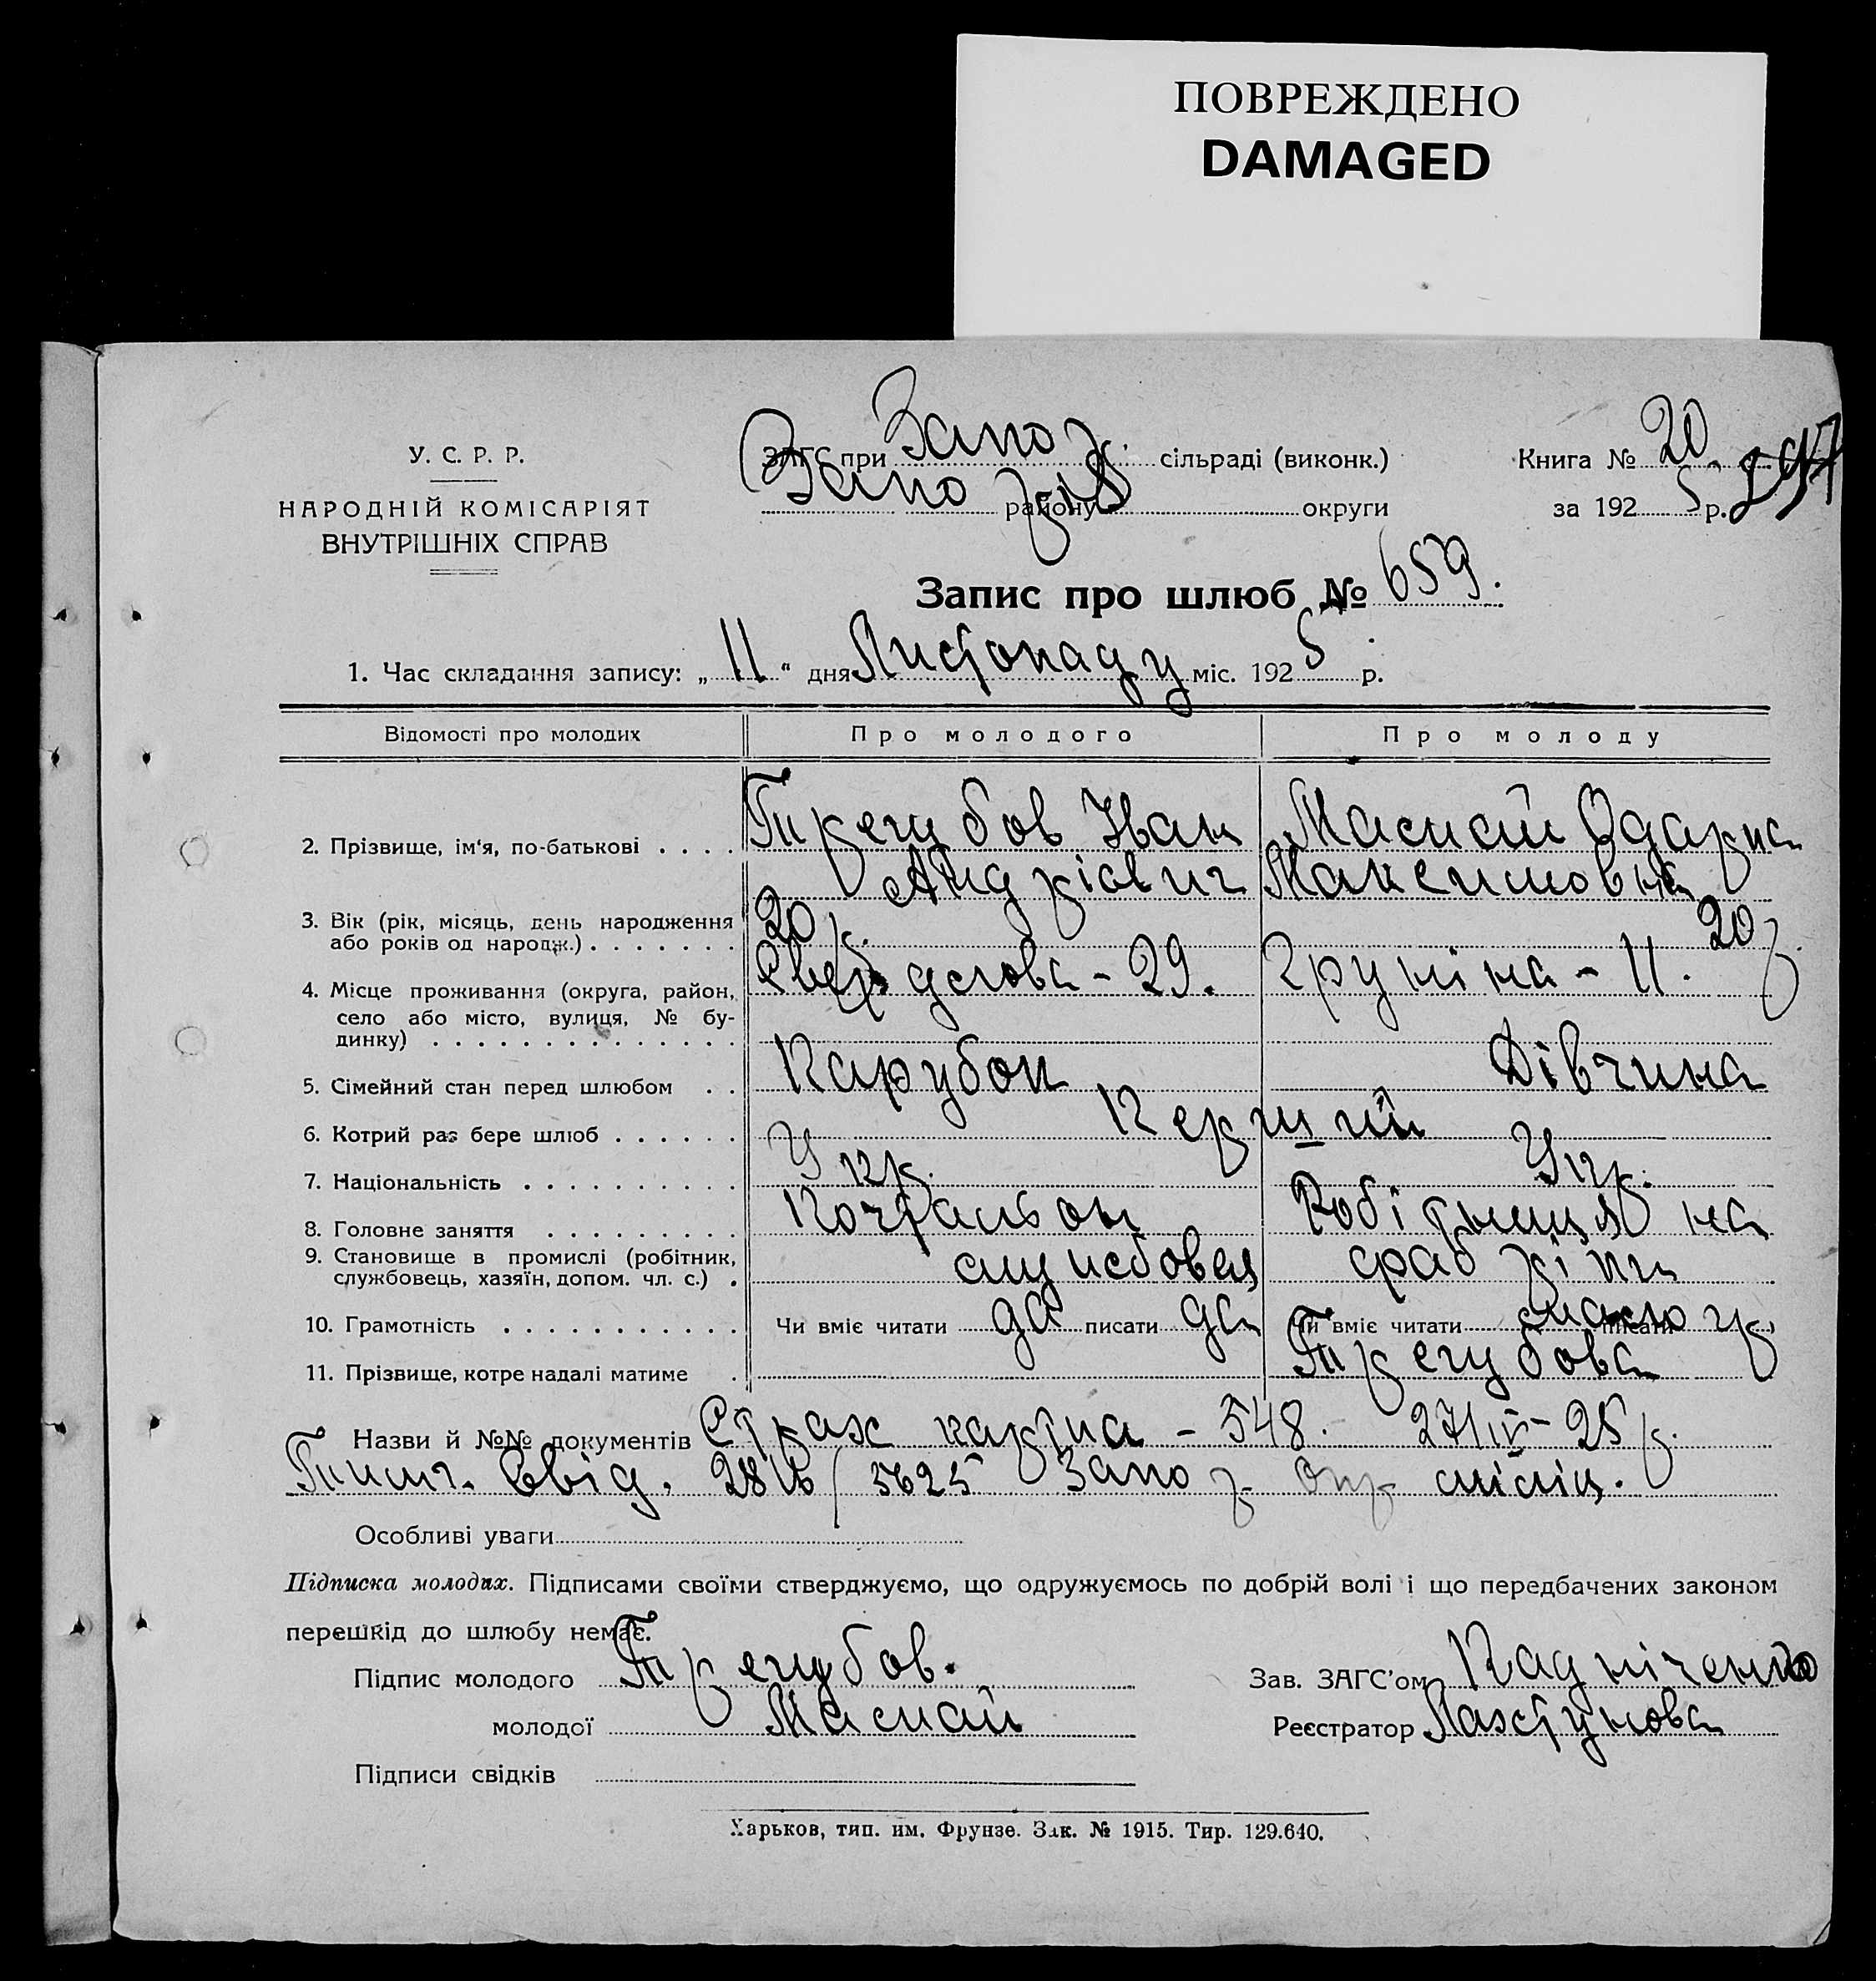 ПОВРЕЖДЕНО
DAMAGED
У. С. Р. Р.
НАРОДНІЙ КОМІСАРІЯТ
ВНУТРІШНІХ СПРАВ
ЗАГС при Запор. сільраді (виконк.)
Запор району округи
Книга № 20
за 192 5 р. 297
Запис про шлюб № 659.
1. Час складання запису: „ 11 “ дня Листопаду міс. 192 5 р.
Відомості про молодих
Про молодого
Про молоду
2. Прізвище, ім'я, по-батькові . . . . Трегубов Іван Андрієвич
Масний Одарка Максимовна
3. Вік (рік, місяць, день народження або років од народж.) . . . . . . . 20 р.
20 р.
4. Місце проживання (округа, район, село або місто, вулиця, № будинку) . . . . . . . . . . . . . . Свердлова - 29.
Груніна - 11.
5. Сімейний стан перед шлюбом . . Парубок
Дівчина
6. Котрий раз бере шлюб . . . . . . Перший
7. Національність . . . . . . . . . . Укр.
Укр.
8. Головне заняття . . . . . . . . . Почтальон
Робітниця на
9. Становище в промислі (робітник, службовець, хазяїн, допом. чл. с.) . службовец
фабриці
10. Грамотність . . . . . . . . . . . Чи вміє читати да писати да
Чи вміє читати писати малогр
11. Прізвище, котре надалі матиме . Трегубова
Назви й №№ документів Страх картка - 548. 27/IV - 25 р.
Тимч. Свід. 2816/5625 Запор окр міліц.
Особливі уваги
Підписка молодих. Підписами своїми стверджуємо, що одружуємось по добрій волі і що передбачених законом
перешкід до шлюбу немає.
Підпис молодого Трегубов.
Зав. ЗАГС'ом Падніченко
молодої Маснай
Реєстратор Лахтунова
Підписи свідків
Харьков, тип. им. Фрунзе. Зак. № 1915. Тир. 129.640.